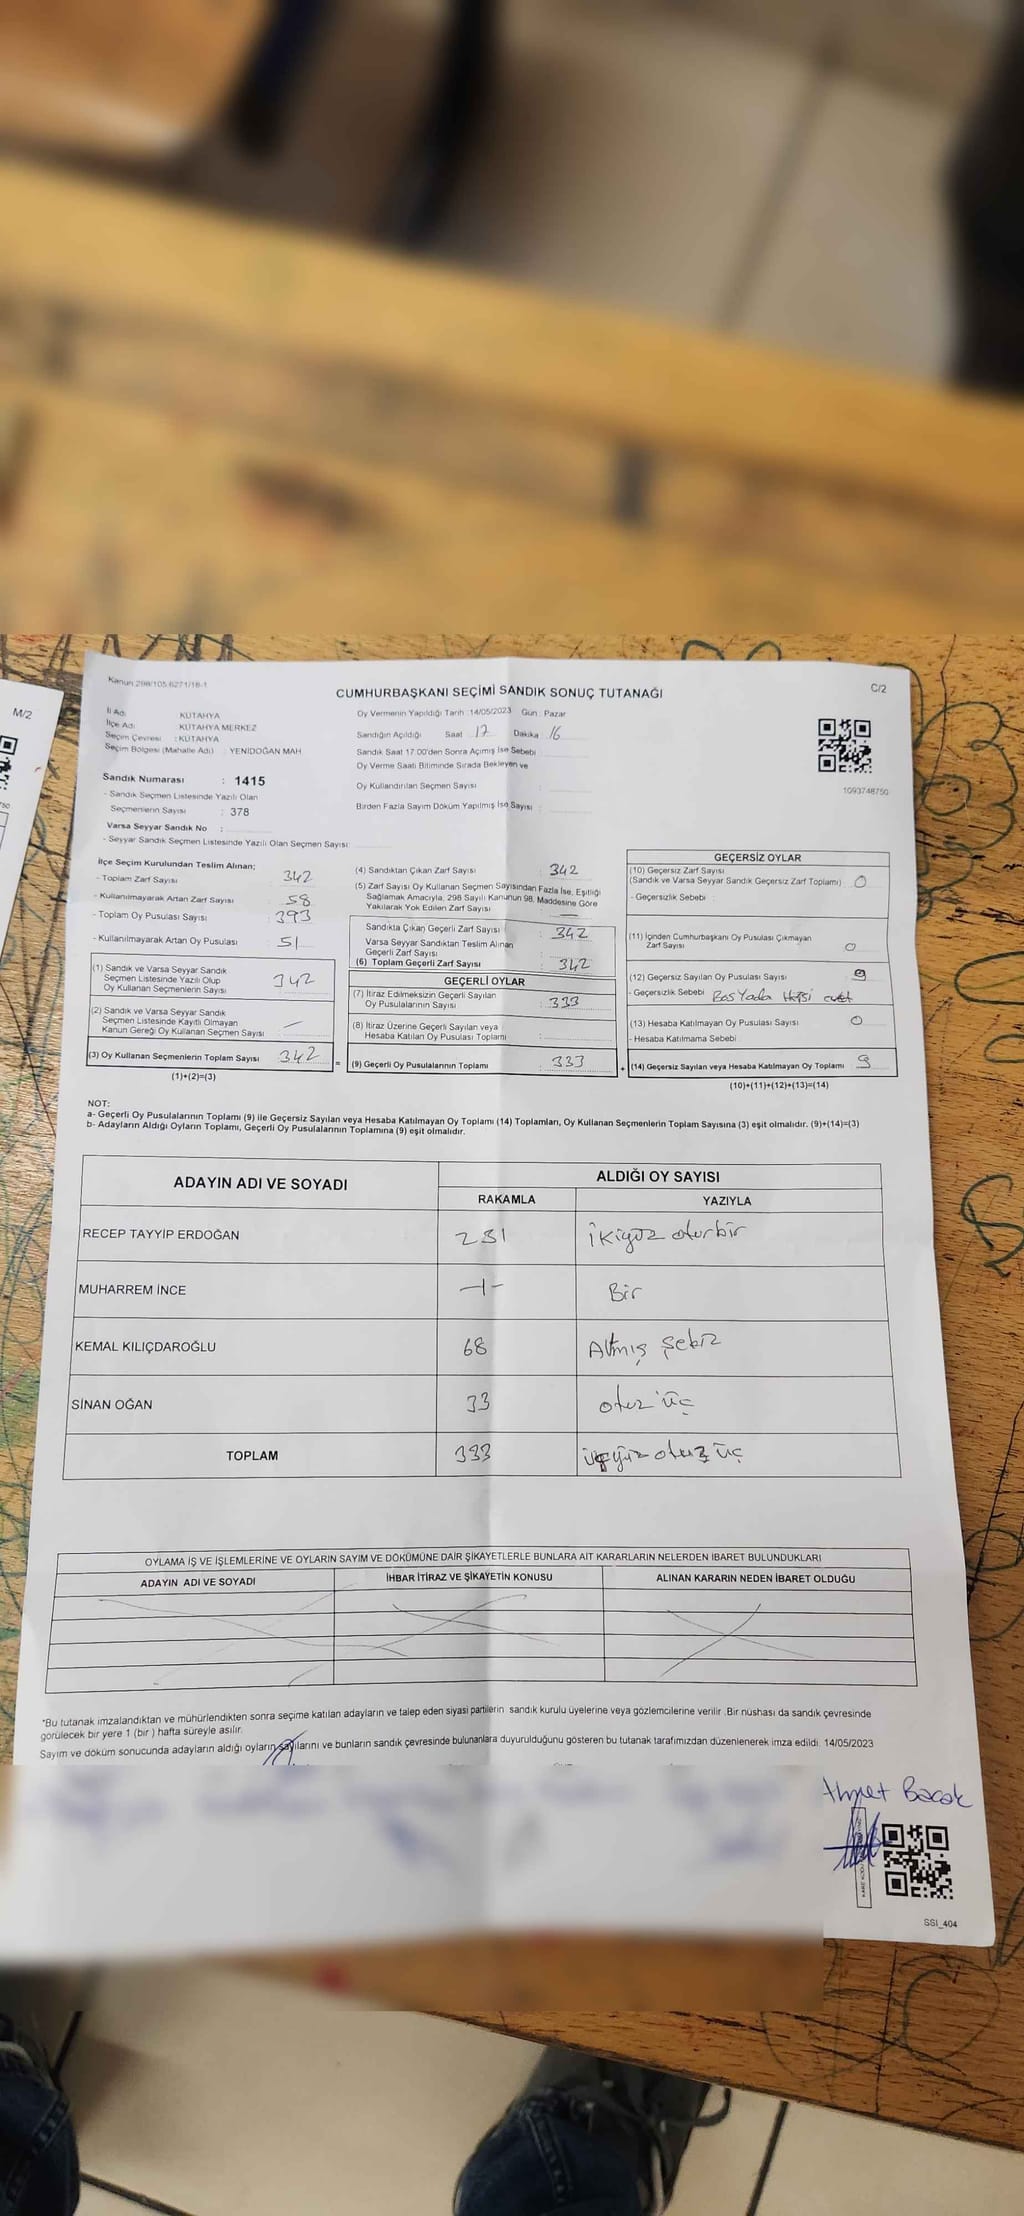 Kanun 298/105 6271/18-1
C/2
M/2
CUMHURBAŞKANI SEÇİMİ SANDIK SONUÇ TUTANAĞI
İl Adı : KÜTAHYA
İlçe Adı : KÜTAHYA MERKEZ
Seçim Çevresi : KÜTAHYA
Seçim Bölgesi (Mahalle Adı) : YENİDOĞAN MAH
Sandık Numarası : 1415
- Sandık Seçmen Listesinde Yazılı Olan
Seçmenlerin Sayısı : 378
Varsa Seyyar Sandık No :
- Seyyar Sandık Seçmen Listesinde Yazılı Olan Seçmen Sayısı:
Oy Vermenin Yapıldığı Tarih :14/05/2023 Gün : Pazar
Sandığın Açıldığı Saat 17 Dakika 16
Sandık Saat 17.00'den Sonra Açılmış İse Sebebi
Oy Verme Saati Bitiminde Sırada Bekleyen ve
Oy Kullandırılan Seçmen Sayısı :
Birden Fazla Sayım Döküm Yapılmış İse Sayısı :
1093748750
İlçe Seçim Kurulundan Teslim Alınan;
- Toplam Zarf Sayısı 342
- Kullanılmayarak Artan Zarf Sayısı 58
- Toplam Oy Pusulası Sayısı 393
- Kullanılmayarak Artan Oy Pusulası 51
(1) Sandık ve Varsa Seyyar Sandık
Seçmen Listesinde Yazılı Olup
Oy Kullanan Seçmenlerin Sayısı 342
(2) Sandık ve Varsa Seyyar Sandık
Seçmen Listesinde Kayıtlı Olmayan
Kanun Gereği Oy Kullanan Seçmen Sayısı —
(3) Oy Kullanan Seçmenlerin Toplam Sayısı 342 =
(1)+(2)=(3)
(4) Sandıktan Çıkan Zarf Sayısı : 342
(5) Zarf Sayısı Oy Kullanan Seçmen Sayısından Fazla İse, Eşitliği
Sağlamak Amacıyla, 298 Sayılı Kanunun 98. Maddesine Göre
Yakılarak Yok Edilen Zarf Sayısı : —
Sandıkta Çıkan Geçerli Zarf Sayısı : 342
Varsa Seyyar Sandıktan Teslim Alınan
Geçerli Zarf Sayısı
(6) Toplam Geçerli Zarf Sayısı : 342
GEÇERLİ OYLAR
(7) İtiraz Edilmeksizin Geçerli Sayılan
Oy Pusulalarının Sayısı : 333
(8) İtiraz Üzerine Geçerli Sayılan veya
Hesaba Katılan Oy Pusulası Toplamı :
(9) Geçerli Oy Pusulalarının Toplamı : 333 +
GEÇERSİZ OYLAR
(10) Geçersiz Zarf Sayısı
(Sandık ve Varsa Seyyar Sandık Geçersiz Zarf Toplamı) : 0
- Geçersizlik Sebebi :
(11) İçinden Cumhurbaşkanı Oy Pusulası Çıkmayan
Zarf Sayısı 0
(12) Geçersiz Sayılan Oy Pusulası Sayısı : 9
- Geçersizlik Sebebi Boş Yada Hepsi evet
(13) Hesaba Katılmayan Oy Pusulası Sayısı : 0
- Hesaba Katılmama Sebebi
(14) Geçersiz Sayılan veya Hesaba Katılmayan Oy Toplamı : 9
(10)+(11)+(12)+(13)=(14)
NOT:
a- Geçerli Oy Pusulalarının Toplamı (9) ile Geçersiz Sayılan veya Hesaba Katılmayan Oy Toplamı (14) Toplamları, Oy Kullanan Seçmenlerin Toplam Sayısına (3) eşit olmalıdır. (9)+(14)=(3)
b- Adayların Aldığı Oyların Toplamı, Geçerli Oy Pusulalarının Toplamına (9) eşit olmalıdır.
ADAYIN ADI VE SOYADI ALDIĞI OY SAYISI
RAKAMLA YAZIYLA
RECEP TAYYİP ERDOĞAN 231 ikiyüz oturbir
MUHARREM İNCE -1- Bir
KEMAL KILIÇDAROĞLU 68 Altmış şekiz
SİNAN OĞAN 33 otuz üç
TOPLAM 333 üçyüz otuz üç
OYLAMA İŞ VE İŞLEMLERİNE VE OYLARIN SAYIM VE DÖKÜMÜNE DAİR ŞİKAYETLERLE BUNLARA AİT KARARLARIN NELERDEN İBARET BULUNDUKLARI
ADAYIN ADI VE SOYADI İHBAR İTİRAZ VE ŞİKAYETİN KONUSU ALINAN KARARIN NEDEN İBARET OLDUĞU
"Bu tutanak imzalandıktan ve mühürlendikten sonra seçime katılan adayların ve talep eden siyasi partilerin sandık kurulu üyelerine veya gözlemcilerine verilir .Bir nüshası da sandık çevresinde
görülecek bir yere 1 (bir ) hafta süreyle asılır.
Sayım ve döküm sonucunda adayların aldığı oyların sayılarını ve bunların sandık çevresinde bulunanlara duyurulduğunu gösteren bu tutanak tarafımızdan düzenlenerek imza edildi. 14/05/2023
Ahmet Bacak
SSİ_404